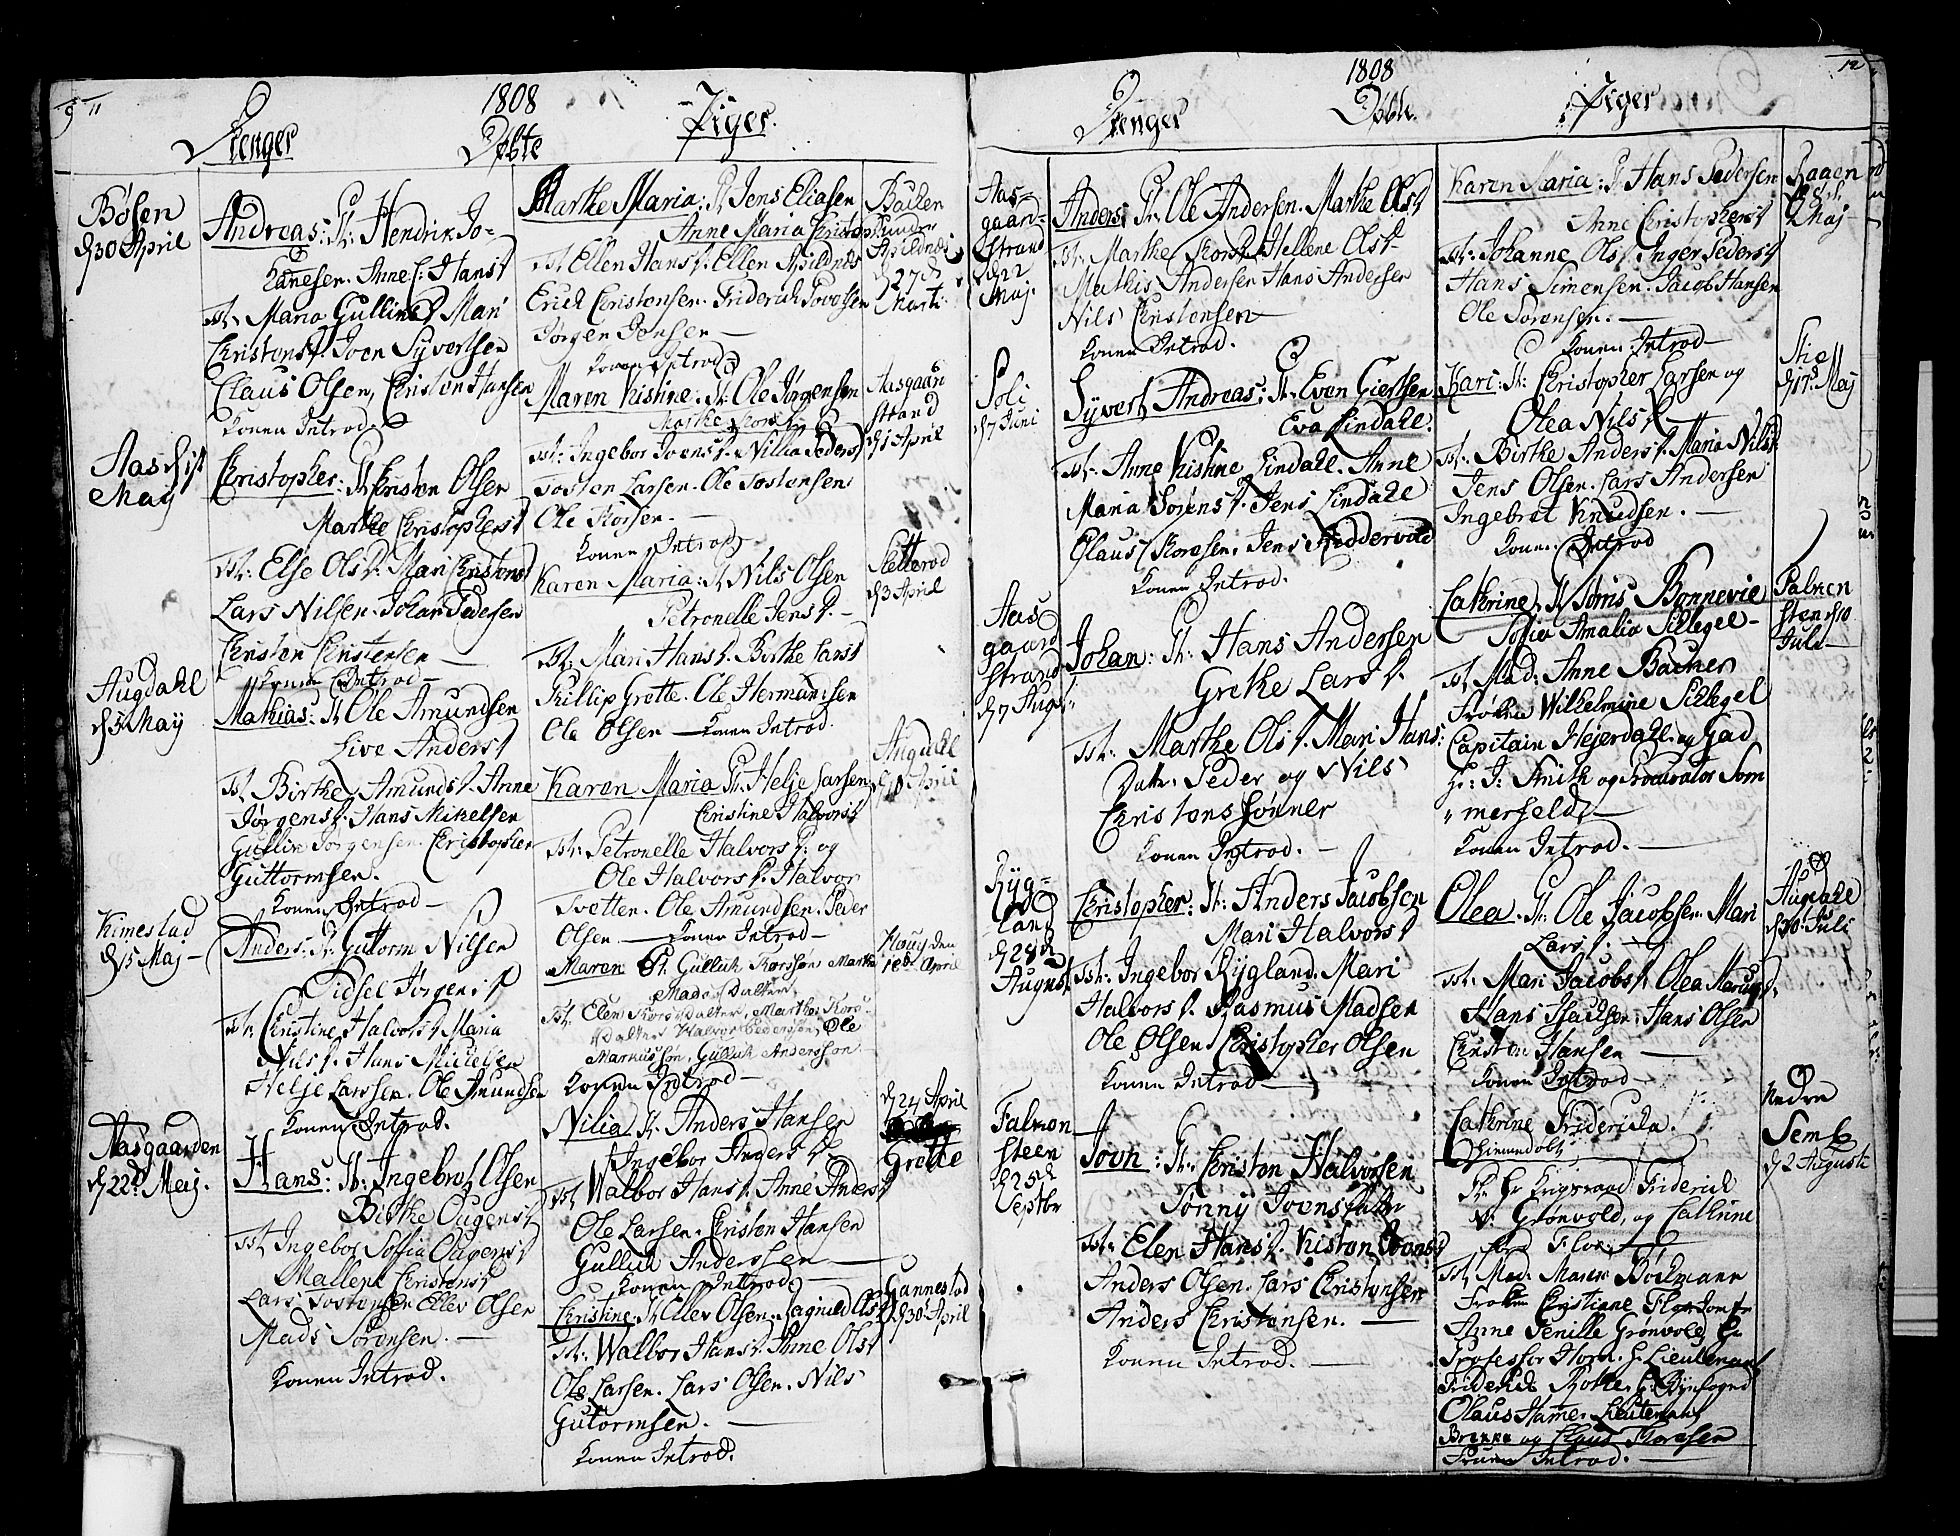 9 11
1808
Drenger Døbte Piger.
Bøsen
d 30 April
Andreas: Fr: Hendrik Jo-
hanesen. Anne C: Hansd
Tst: Maria Gullins d Mari
Christensd. Joen Syvertsen
Claus Olsen, Christen Hansen
Konen Introd.
Aas d 1st
May
Christopher: Fr: Kristen Olsen
Marthe Christophersd
Tst: Else Olsd. Mari Christensd
Lars Nilsen. Johan Pedersen
Christen Christensen
Konen Introd
Augdahl
d 5 May
Mathias: Fr: Ole Amundsen
Live Andersd
Tst: Birthe Amundsd. Anne
Jørgensd. Hans Mikelsen
Gullin Jørgensen. Christopher
Guttormsen.
Konen Introd
Kimestad
d 15 Maj
Anders: Fr: Guttorm Nilsen
Sidsel Jørgensd
Tst: Christine Halvorsd Maria
Nilsd. Hans Mickelsen
Helje Larssen. Ole Amundsen
Konen Introd.
Aasgaarden
d 22d Maj.
Hans: Fr: Ingebret Olsen
Birthe Ougensd
Tst: Ingebor Soffia Ougensd
Mallene Christensd
Lars Tostensen Ellev Olsen
Mads Sørensen.
Konen Introd.
Marthe Maria: Fr Jens Eliasen
Anne Maria Christophersd
Tst: Ellen Hansd. Ellen Apildnds
Erich Christensen. Friderich Povelsen
Jørgen Jensen
Konen Introd
Bachen
under
Apildnds
d 27de
Marti
Maren Kistine: Fr: Ole Jørgensen
Marthe Korsd
Tst: Ingebor Joensd. Nillia Pedersd
Tosten Larsen. Ole Tostensen
Ole Korsen.
Konen Introd
Aasgaard
strand
d 1 April
Karen Maria: Fr Nils Olsen
Petronelle Jensd.
Tst: Mari Hansd. Birthe Larsd
Phillip Grette. Ole Hermansen
Ole Olsen Konen Introd.
Sletterod
d 3 April
Karen Maria Fr. Helje Larsen
Christine Halvorsd
Tst: Petronelle Halvorsd. og
Ole Halvorsd. Halvor
Tvetten. Ole Amundsen. Peder
Olsen. Konen Introd
Augdahl
d 18 April
Maren Fr. Gulluk Korssøn Marthe
Madsdatter
Tst. Elen Korsdatter, Marthe Kors-
datter Halvor Pederssøn, Ole
Markussøn, Gulluk Anderssøn
Konen Introd
Houg den
18de April
Nilia Fr. Anders Hansen
Ingebor Andersd.
Tst Walbor Hansd. Anne Andersd
Ole Larsen. Christen Hansen
Gulluk Anderssen
Konen Introd.
d 24 April
Grette
Christine Fr Ellev Olsen. Ragnild Olsd
Tst: Walbor Hansd. Anne Olsd
Ole Larsen. Lars Olsen. Nils
Gutormsen.
Konen Introd.
Gannestad
d 30 April
12
1808
Drenger Døbte. Piger
Aas-
gaard-
strand
d 22
Maj.
Anders: Fr: Ole Andersen. Marthe Olsd
Tst: Marthe Korsd. Hellene Olsd
Mathis Andersen Hans Andersen
Nils Christensen
Konen Introd.
Soli
d 7 Juni
Syvert Andreas: Fr: Even Giertsen
Eva Lindahl.
Tst: Anne Kistine Lindahl. Anne
Maria Sørensd. Jens Lindahl
Claus Thoresen. Jens Hedderwold
Konen Introd.
Aas
gaard
strand
d 7 Augst
Johan: Fr: Hans Andersen
Grethe Larsd.
Tst: Marthe Olsd. Mari Hans:
Dater. Peder og Nils
Christensønner
Konen Introd.
Ryg-
land
d 28de
August
Christopher: Fr: Anders Jacobsen
Mari Halvorsd
Tst: Ingebor Rygland. Mari
Halvorsd. Rasmus Madsen
Ole Olsen Christopher Olsen
Konen Introd
Falken
steen
d 25de
Septbr
Jovh: Fr: Christen Halvorsen
Sønny Joensdatter
Tst: Elen Hansd. Kisten Joensd
Anders Olsen. Lars Christensen
Anders Christensen.
Konen Introd.
Karen Maria: Fr Hans Pedersen
Anne Christophersd
Tst: Johanne Olsd. Inger Pedersd
Hans Simensen. Jacob Hansen
Ole Sørensen.
Konen Introd
Raaen
2 Maj
Kari: Fr: Christopher Larsen og
Olea Nilsd
Tst: Birthe Andersd. Maria Nilsd
Jens Olsen. Lars Andersen
Ingebret Knudsen.
Konen Introd
Stie
d 17d Maj
Cathrine: Fr Honis Bonnevie
Sofia Amalia Sillegel
Tst Mad: Anne Bacher
Frøken Wilhelmine Sillegel
Capitain Hejerdahl. og Gad
Hr: J: Smith og Procurator Som
merfeld,
Konen Introd.
Falken
sten d 10
Juli
Olea. Fr. Ole Jacobsen Mari
Larsd.
Tst: Mari Jacobsd. Olea Maria d.
Hans Isachsen. Hans Olsen
Christen Hansen
Konen Introd
Augdahl
d 30 Juli
Cathrine Friderica.
Hiemdøbt
Fr. Hr Krigsraad Friderick
v. Grønvold, og Cathrine
fød Flor.
Tst Mad. Maren Bochmann
Frøken Christiane Flor Jomfr
Anne Pernille Grønvold, Hr
Professor Horn. H. Lieutenant
Friderich Hr: Byefoged
Claus Hamer. Lieutenant
og Claus Thoresen
Fruen Introd.
Nedre
Semb
d 2 Augusti